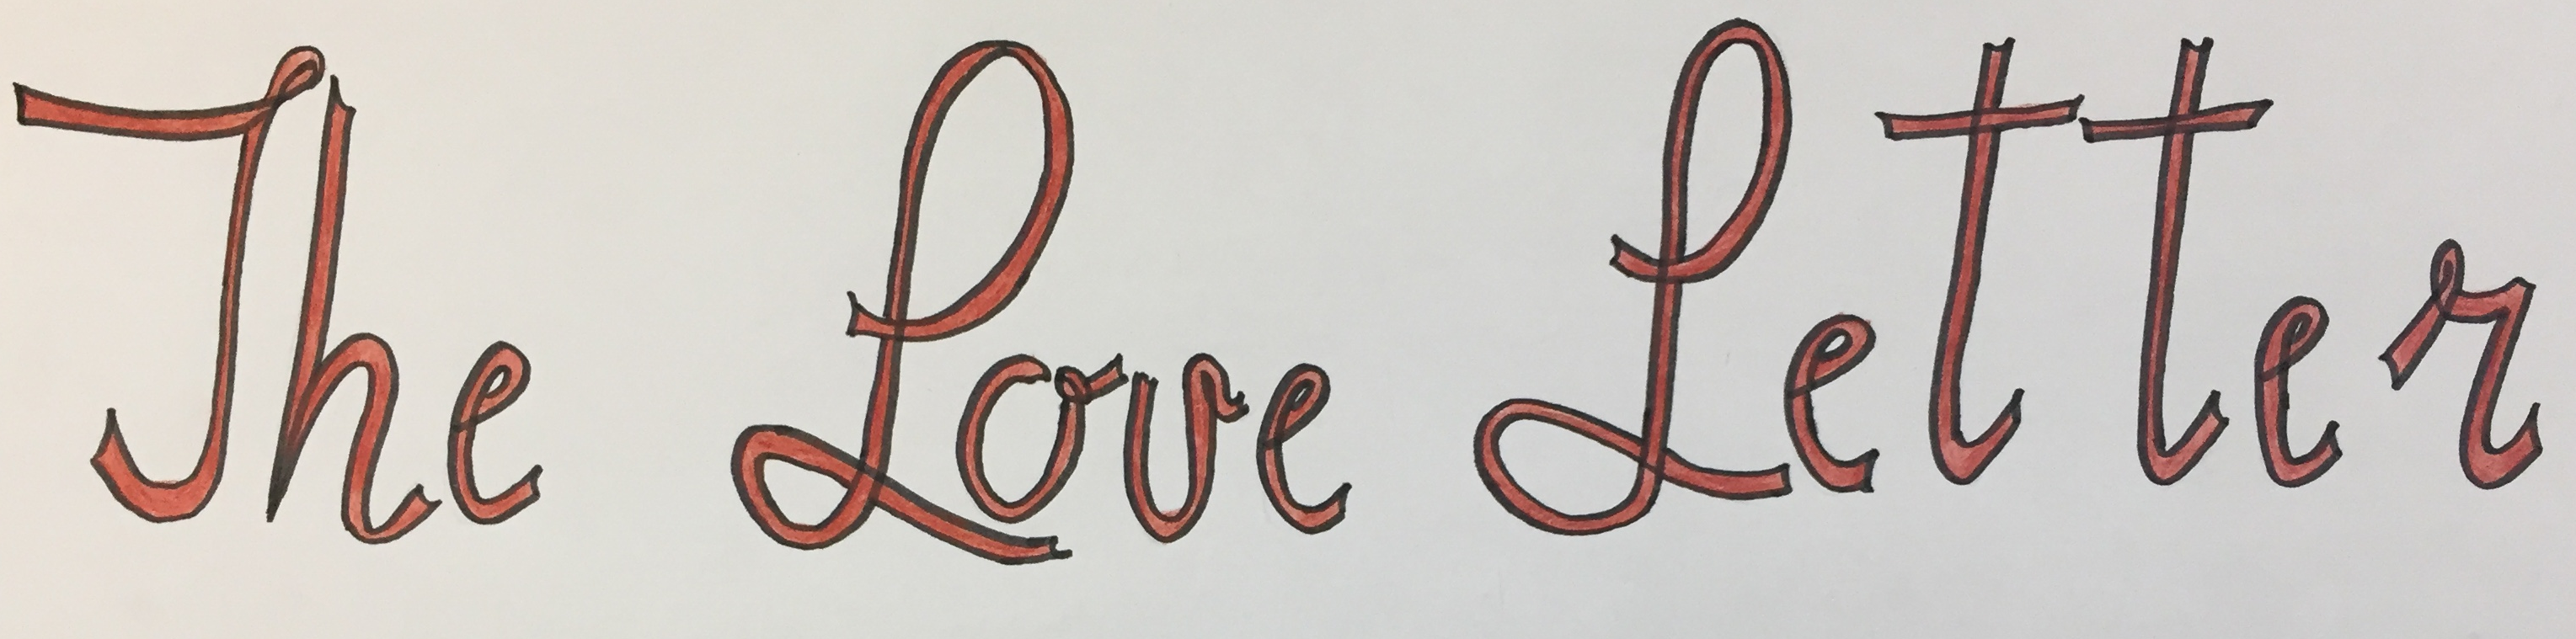 The Love Letter